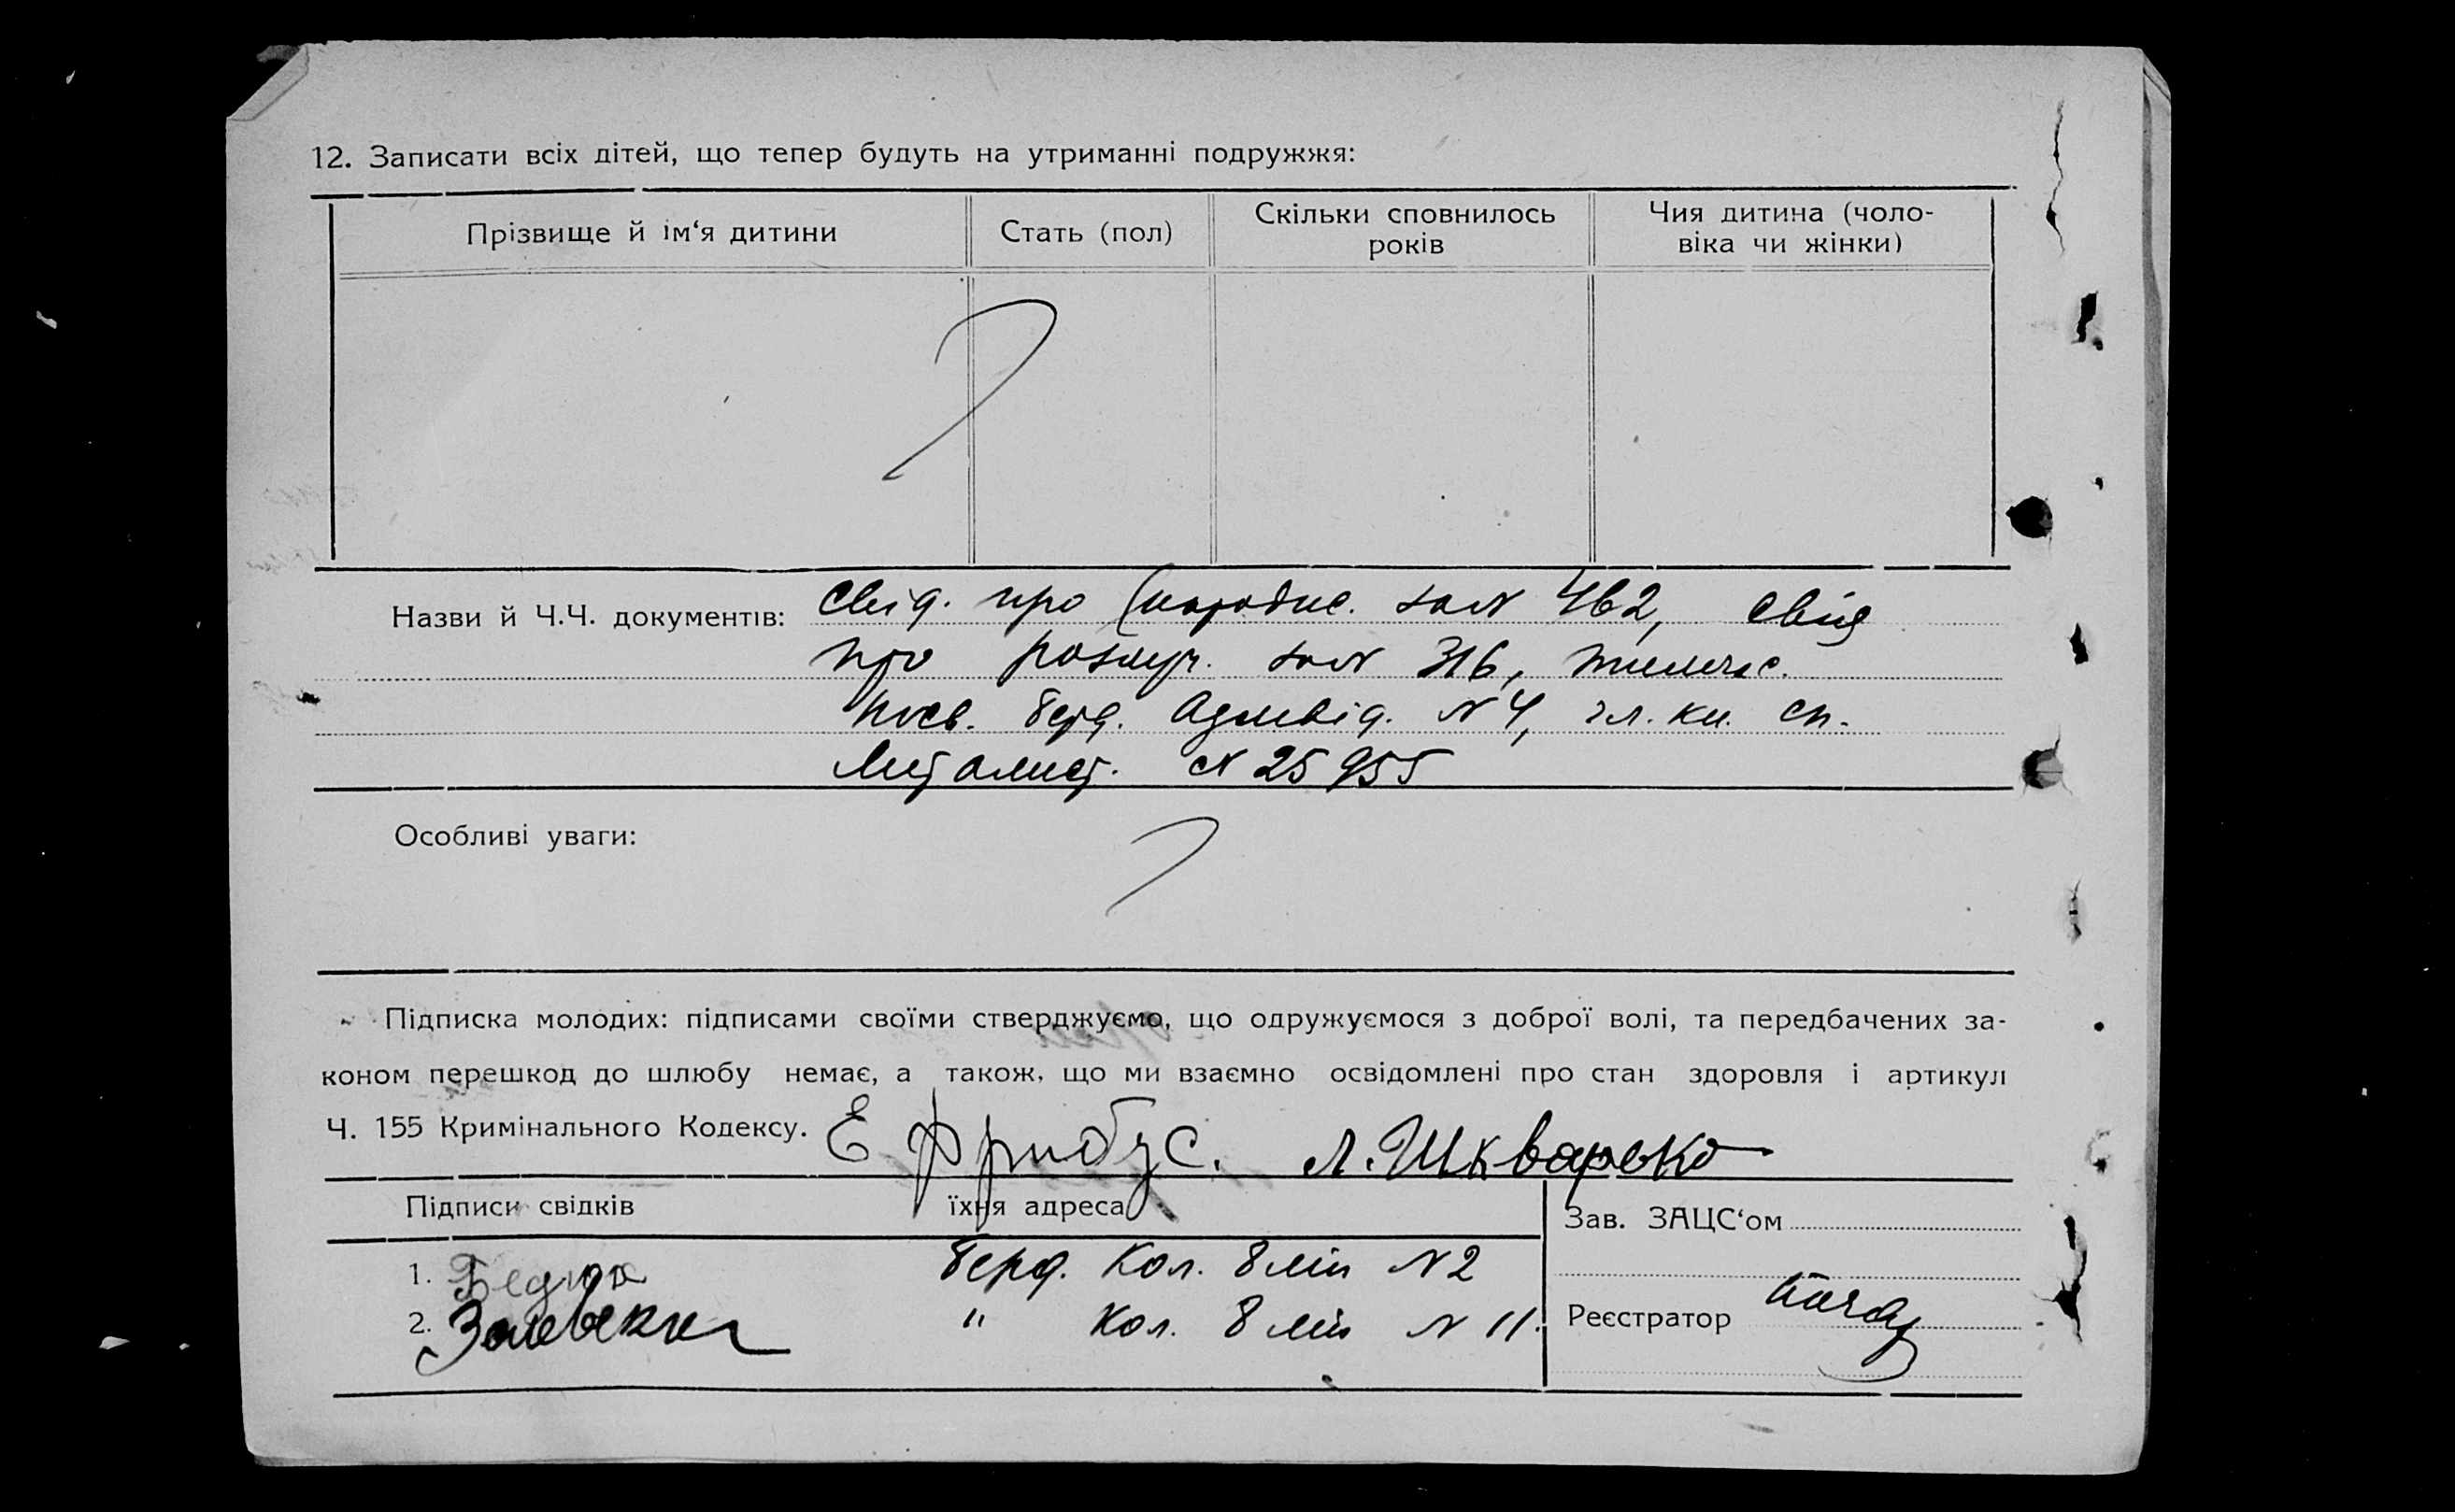 12. Записати всіх дітей, що тепер будуть на утриманні подружжя:
Прізвище й ім‘я дитини
Стать (пол)
Скільки сповнилось
років
Чия дитина (чоло-
віка чи жінки)
Назви й Ч.Ч. документів: Свід. про народж. за № 462, Свід
про розлуч. за № 316, тимчас.
посв. Берд. Адмвід. № 4, чл. кн. сп.
Металист. № 25955
Особливі уваги:
Підписка молодих: підписами своїми стверджуємо, що одружуємося з доброї волі, та передбачених за-
коном перешкод до шлюбу немає, а також, що ми взаємно освідомлені про стан здоровля і артикул
Ч. 155 Кримінального Кодексу. Е Фрибус. Л. Шкварько
Підписи свідків їхня адреса
Зав. ЗАЦС‘ом
1. Берд. Кол. 8 лін № 2
2. " Кол. 8 лін № 11
Реєстратор